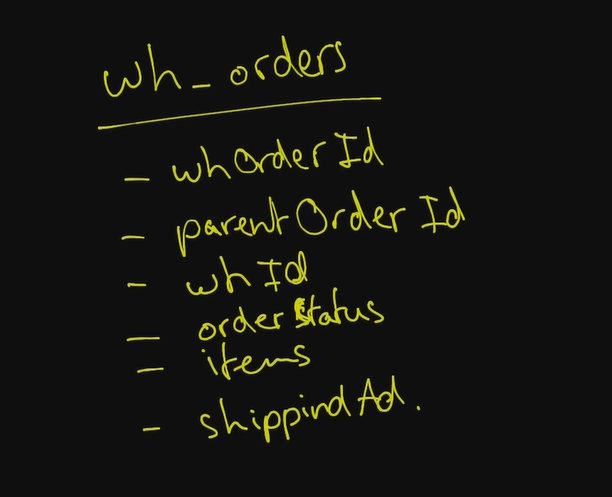 wh_orders
- whOrderId
- parentOrderId
- whId
- orderStatus
- items
- shippindAd.